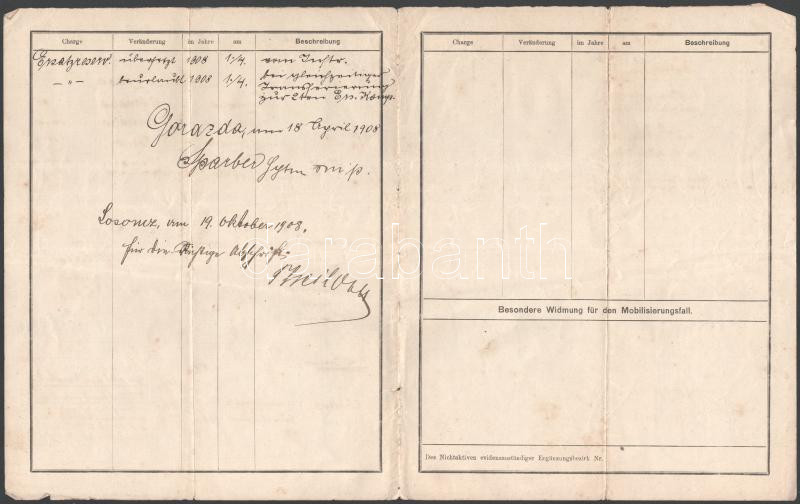 Charge Veränderung im Jahre am Beschreibung
Ersatzreserv. übersetzt 1908 1/4. vom Instr.
–"– beurlaubt 1908 1/4. bei gleichzeitiger
Transferierung
zur 2ten Ers. Komp.
Gorazda, am 18 April 1908
Sparber Hptm m/p.
Losoncz, am 19. Oktober 1908.
für die Richtige Abschrift:
Charge Veränderung im Jahre am Beschreibung
Besondere Widmung für den Mobilisierungsfall.
Des Nichtaktiven evidenzzuständiger Ergänzungsbezirk Nr.
darabanth